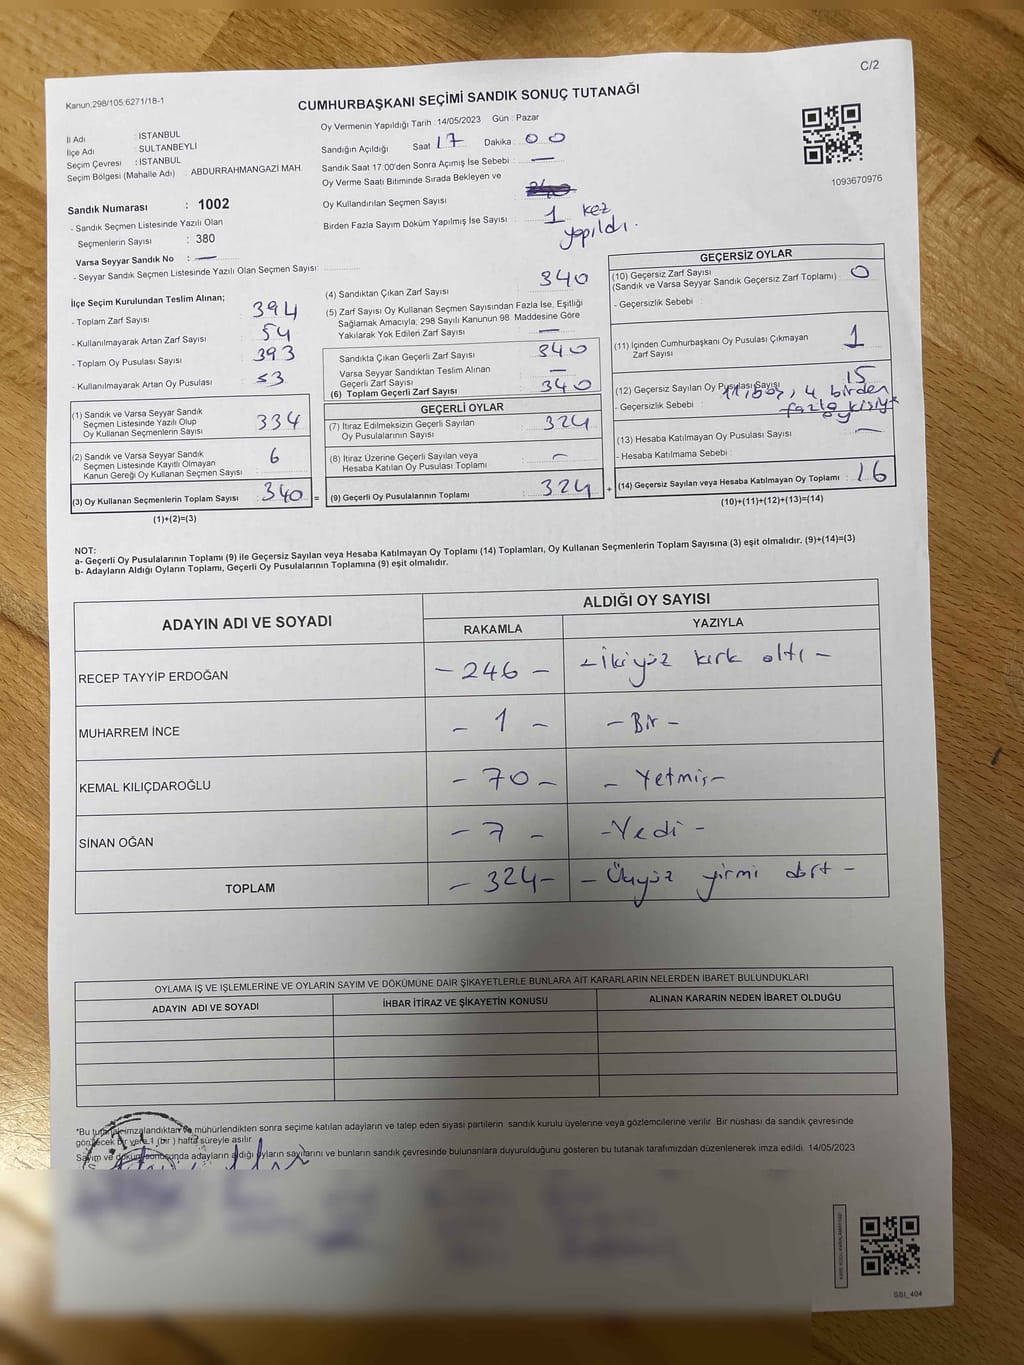 C/2
Kanun.298/105.6271/18-1
CUMHURBAŞKANI SEÇİMİ SANDIK SONUÇ TUTANAĞI
İl Adı : İSTANBUL
İlçe Adı : SULTANBEYLİ
Seçim Çevresi : İSTANBUL
Seçim Bölgesi (Mahalle Adı) : ABDURRAHMANGAZİ MAH
Oy Vermenin Yapıldığı Tarih : 14/05/2023 Gün : Pazar
Sandığın Açıldığı Saat 17 Dakika : 00
Sandık Saat 17:00'den Sonra Açımış İse Sebebi : —
Oy Verme Saati Bitiminde Sırada Bekleyen ve
Oy Kullandırılan Seçmen Sayısı
Birden Fazla Sayım Döküm Yapılmış İse Sayısı : 1 kez
yapıldı.
1093670976
Sandık Numarası : 1002
- Sandık Seçmen Listesinde Yazılı Olan
Seçmenlerin Sayısı : 380
Varsa Seyyar Sandık No : —
- Seyyar Sandık Seçmen Listesinde Yazılı Olan Seçmen Sayısı:
İlçe Seçim Kurulundan Teslim Alınan;
- Toplam Zarf Sayısı : 394
- Kullanılmayarak Artan Zarf Sayısı : 54
- Toplam Oy Pusulası Sayısı : 393
- Kullanılmayarak Artan Oy Pusulası : 53
(1) Sandık ve Varsa Seyyar Sandık
Seçmen Listesinde Yazılı Olup
Oy Kullanan Seçmenlerin Sayısı : 334
(2) Sandık ve Varsa Seyyar Sandık
Seçmen Listesinde Kayıtlı Olmayan
Kanun Gereği Oy Kullanan Seçmen Sayısı : 6
(3) Oy Kullanan Seçmenlerin Toplam Sayısı : 340 =
(1)+(2)=(3)
(4) Sandıktan Çıkan Zarf Sayısı : 340
(5) Zarf Sayısı Oy Kullanan Seçmen Sayısından Fazla İse, Eşitliği
Sağlamak Amacıyla; 298 Sayılı Kanunun 98. Maddesine Göre
Yakılarak Yok Edilen Zarf Sayısı : —
Sandıkta Çıkan Geçerli Zarf Sayısı : 340
Varsa Seyyar Sandıktan Teslim Alınan
Geçerli Zarf Sayısı : —
(6) Toplam Geçerli Zarf Sayısı : 340
GEÇERLİ OYLAR
(7) İtiraz Edilmeksizin Geçerli Sayılan
Oy Pusulalarının Sayısı : 324
(8) İtiraz Üzerine Geçerli Sayılan veya
Hesaba Katılan Oy Pusulası Toplamı : —
(9) Geçerli Oy Pusulalarının Toplamı : 324 +
GEÇERSİZ OYLAR
(10) Geçersiz Zarf Sayısı : 0
(Sandık ve Varsa Seyyar Sandık Geçersiz Zarf Toplamı)
- Geçersizlik Sebebi :
(11) İçinden Cumhurbaşkanı Oy Pusulası Çıkmayan
Zarf Sayısı : 1
(12) Geçersiz Sayılan Oy Pusulası Sayısı : 15
- Geçersizlik Sebebi : 11, boş, 4 birden
fazla kişiye
(13) Hesaba Katılmayan Oy Pusulası Sayısı : —
- Hesaba Katılmama Sebebi :
(14) Geçersiz Sayılan veya Hesaba Katılmayan Oy Toplamı : 16
(10)+(11)+(12)+(13)=(14)
NOT:
a- Geçerli Oy Pusulalarının Toplamı (9) ile Geçersiz Sayılan veya Hesaba Katılmayan Oy Toplamı (14) Toplamları, Oy Kullanan Seçmenlerin Toplam Sayısına (3) eşit olmalıdır. (9)+(14)=(3)
b- Adayların Aldığı Oyların Toplamı, Geçerli Oy Pusulalarının Toplamına (9) eşit olmalıdır.
ADAYIN ADI VE SOYADI ALDIĞI OY SAYISI
RAKAMLA YAZIYLA
RECEP TAYYİP ERDOĞAN - 246 - - İkiyüz kırk altı -
MUHARREM İNCE - 1 - - Bir -
KEMAL KILIÇDAROĞLU - 70 - - Yetmiş -
SİNAN OĞAN - 7 - - Yedi -
TOPLAM - 324 - - Üçyüz yirmi dört -
OYLAMA İŞ VE İŞLEMLERİNE VE OYLARIN SAYIM VE DÖKÜMÜNE DAİR ŞİKAYETLERLE BUNLARA AİT KARARLARIN NELERDEN İBARET BULUNDUKLARI
ADAYIN ADI VE SOYADI İHBAR İTİRAZ VE ŞİKAYETİN KONUSU ALINAN KARARIN NEDEN İBARET OLDUĞU
*Bu tutanak imzalandıktan ve mühürlendikten sonra seçime katılan adayların ve talep eden siyasi partilerin sandık kurulu üyelerine veya gözlemcilerine verilir. Bir nüshası da sandık çevresinde
görülecek bir yere 1 (bir ) hafta süreyle asılır.
Sayım ve döküm sonucunda adayların aldığı oyların sayılarını ve bunların sandık çevresinde bulunanlara duyurulduğunu gösteren bu tutanak tarafımızdan düzenlenerek imza edildi. 14/05/2023
SSI_404